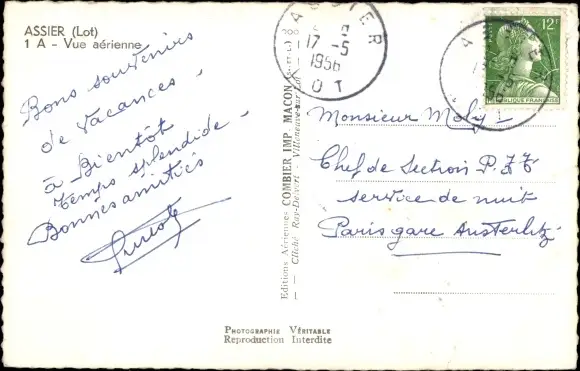 ASSIER (Lot)
1 A - Vue aérienne
Bons souvenirs
de vacances -
à Bientôt
temps splendide -
Bonnes amitiés
Editions Aériennes COMBIER IMP. MACON
Cliché Ray-Delvert - Villeneuve-sur-Lot
ASSIER
17 -5
1956
LOT
12F
REPUBLIQUE FRANÇAISE
Monsieur Moly
Chef de Section P.T.T
service de nuit
Paris gare Austerlitz
PHOTOGRAPHIE VÉRITABLE
Reproduction Interdite